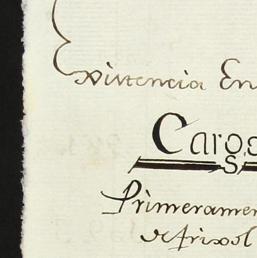 Existencia En
Cargo
Primeramen
de frixol